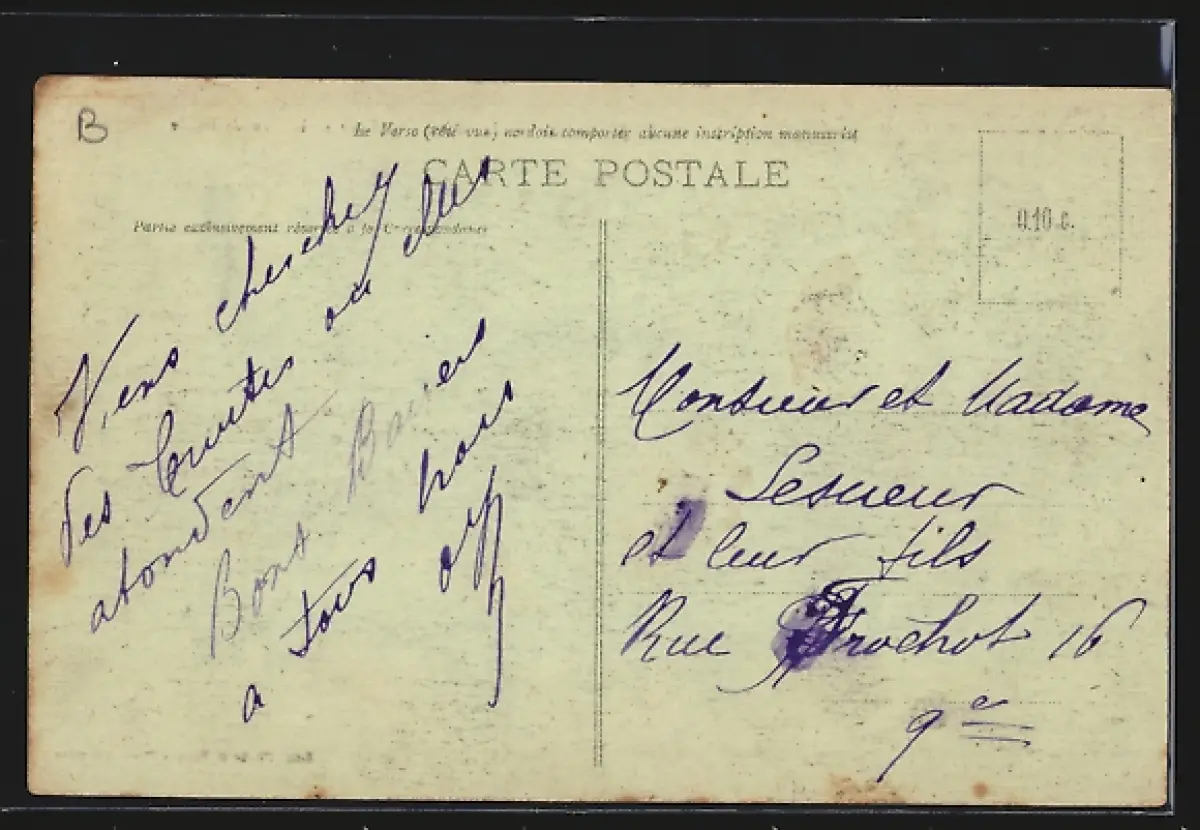 B
Le Verso (côté vue) ne doit comporter aucune inscription manuscrite
CARTE POSTALE
Partie exclusivement réservée à la Correspondance
0.10 c.
Viens chercher
des truites ou elles
abondent
Bons Baisers
a tous
Monsieur et Madame
Lesueur
et leur fils
Rue Frochot 16
9e